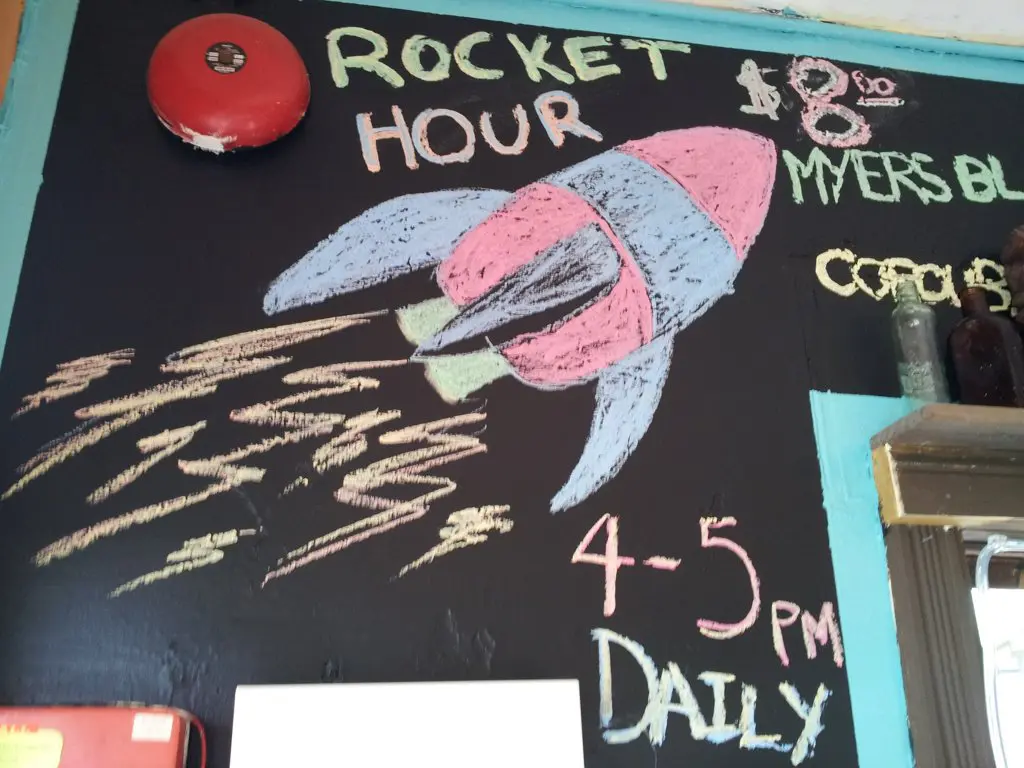 ROCKET
HOUR
$8.00
MYERS BL
4-5
PM
DAILY